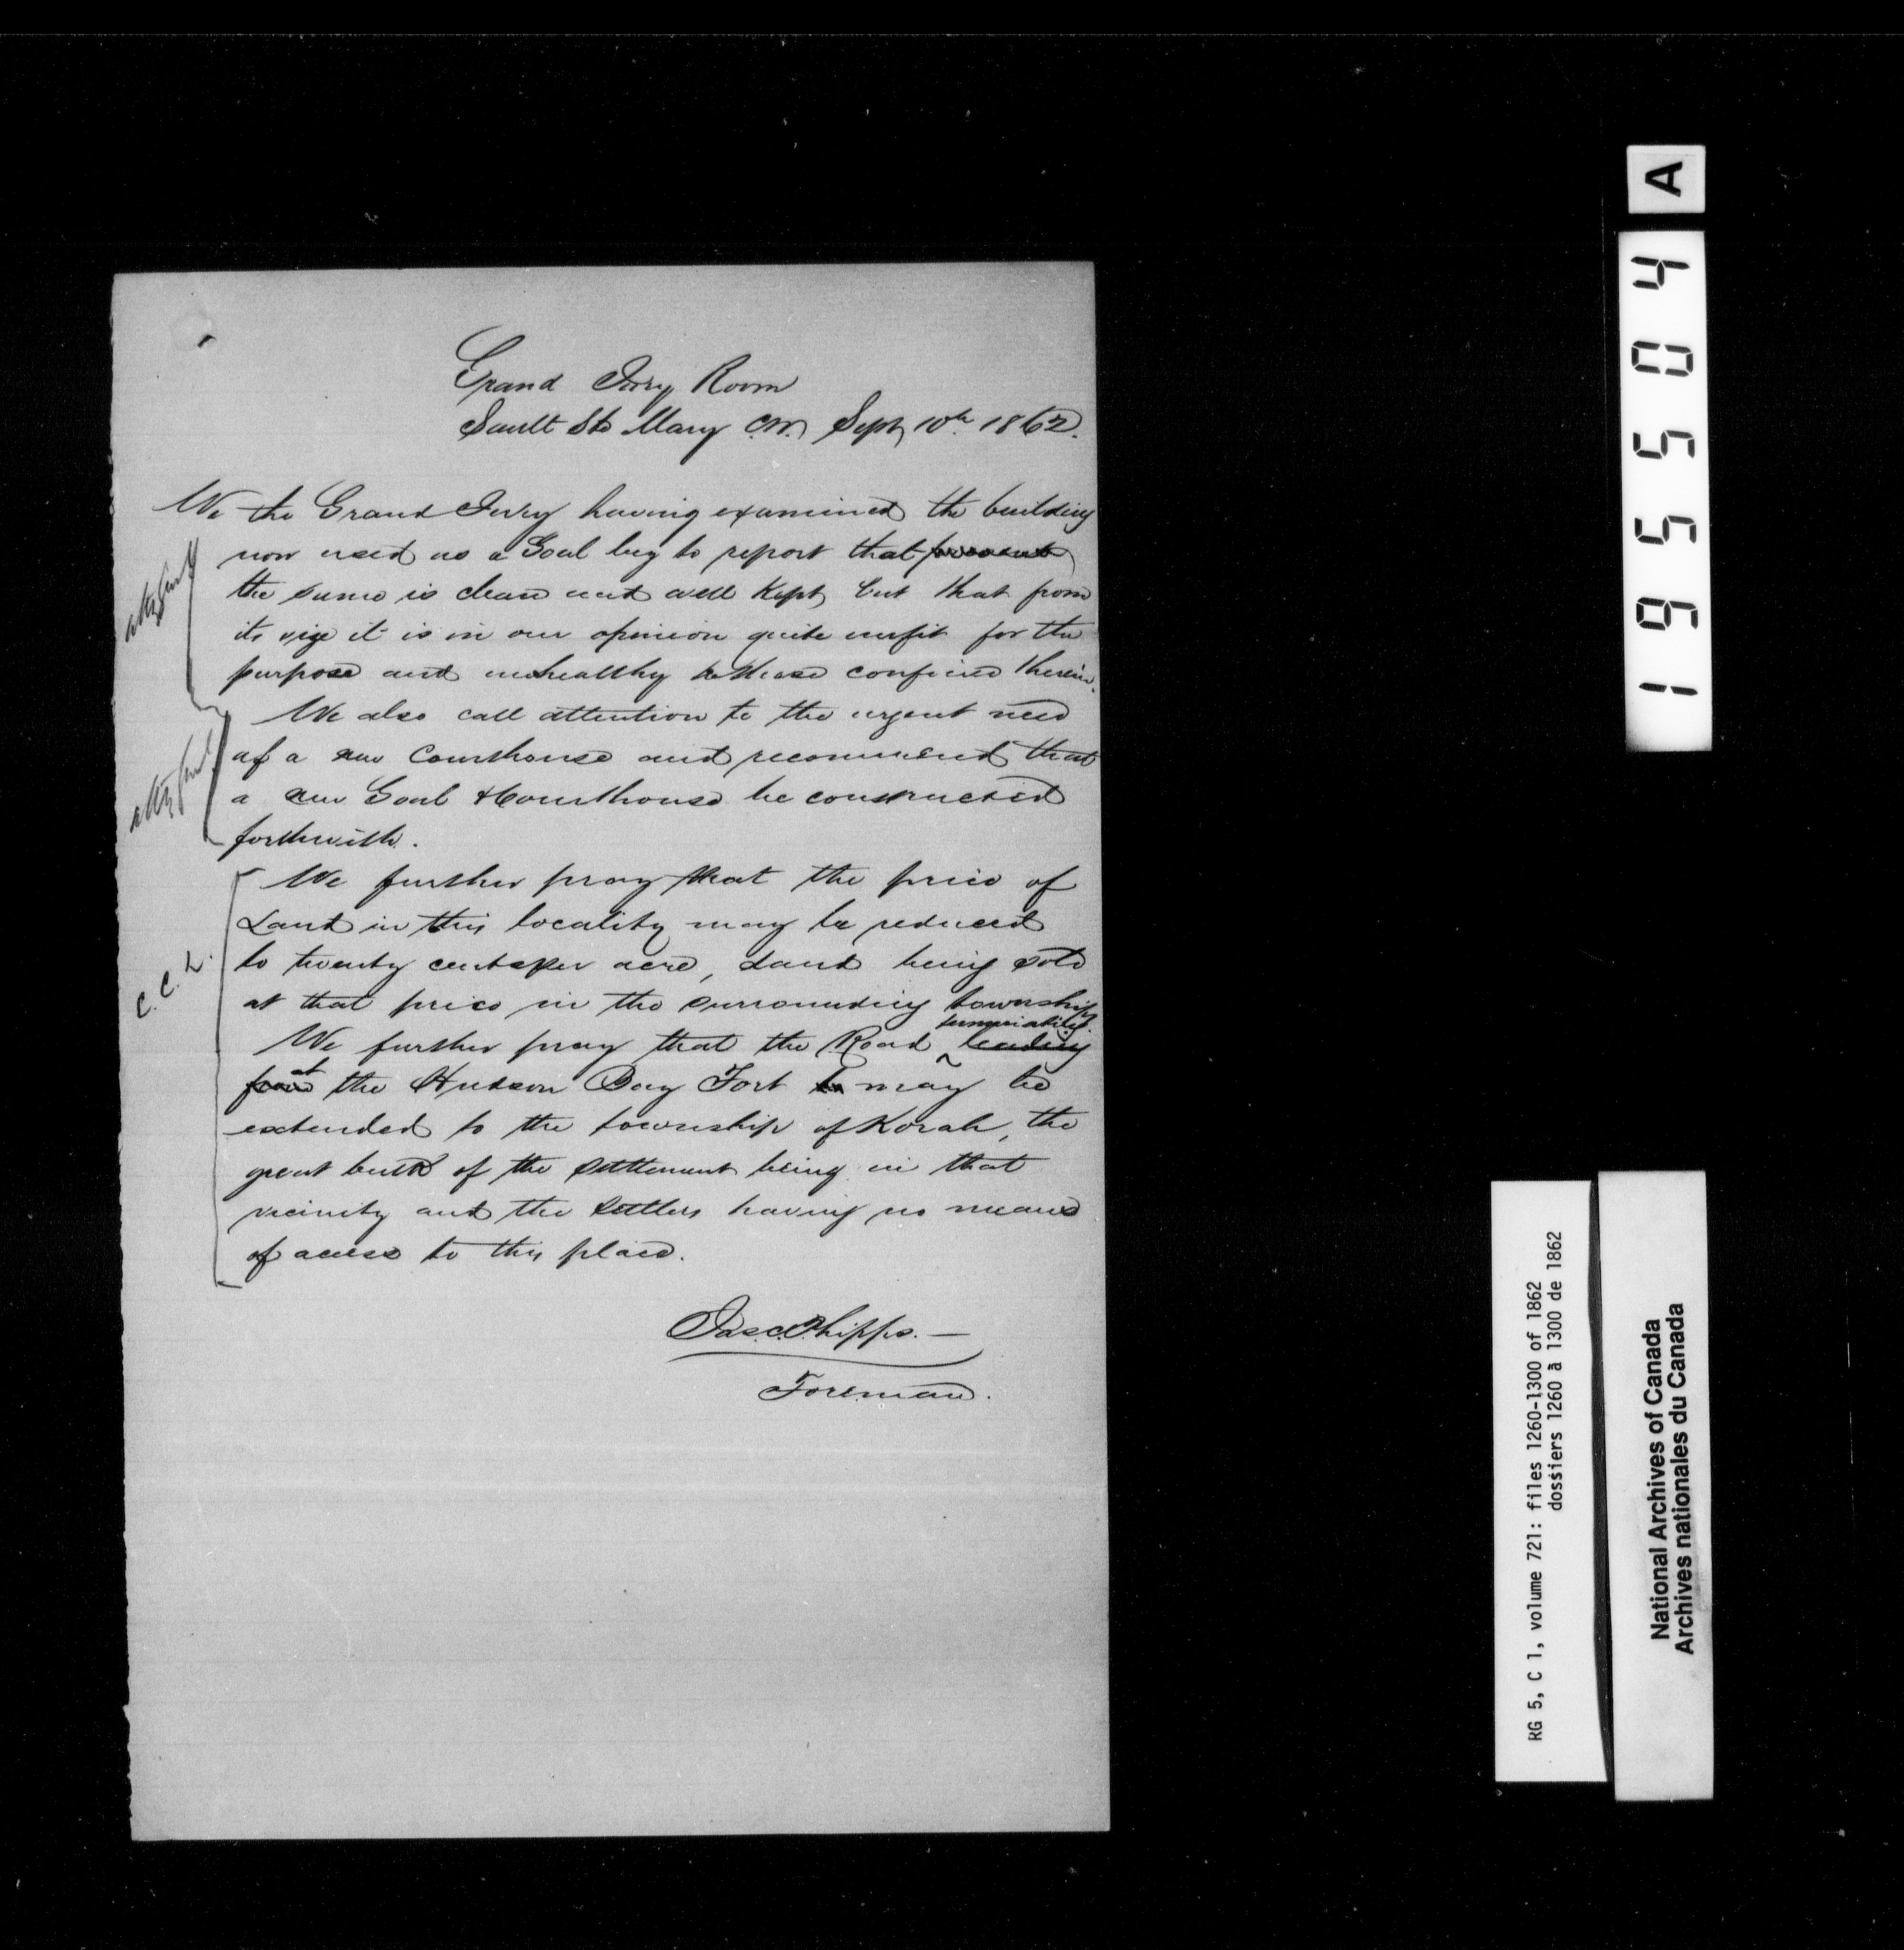 Grand Jury Room
Sault Ste Mary C.W. Sept 10th 1862.
We the Grand Jury having examined the building
now used as a Goal beg to report that
the same is clean and well kept but that from
its size it is in our opinion quite unfit for the
purpose and unhealthy to those confined therein.
We also call attention to the urgent need
of a new Courthouse and recommend that
a new Goal & Courthouse be constructed
forthwith.
We further pray that the price of
Land in this locality may be reduced
to twenty cents per acre, Land being sold
at that price in the surrounding townships
We further pray that the Road terminating leading
from at the Hudson Bay Fort to may be
extended to the township of Korah, the
great bulk of the settlement being in that
vicinity and the settlers having no means
of access to this place.
Jas. C. Phipps.—
Foreman.
atty Genl
atty Genl
C. C. L.
195504 A
RG 5, C 1, volume 721: files 1260-1300 of 1862
dossiers 1260 à 1300 de 1862
National Archives of Canada
Archives nationales du Canada